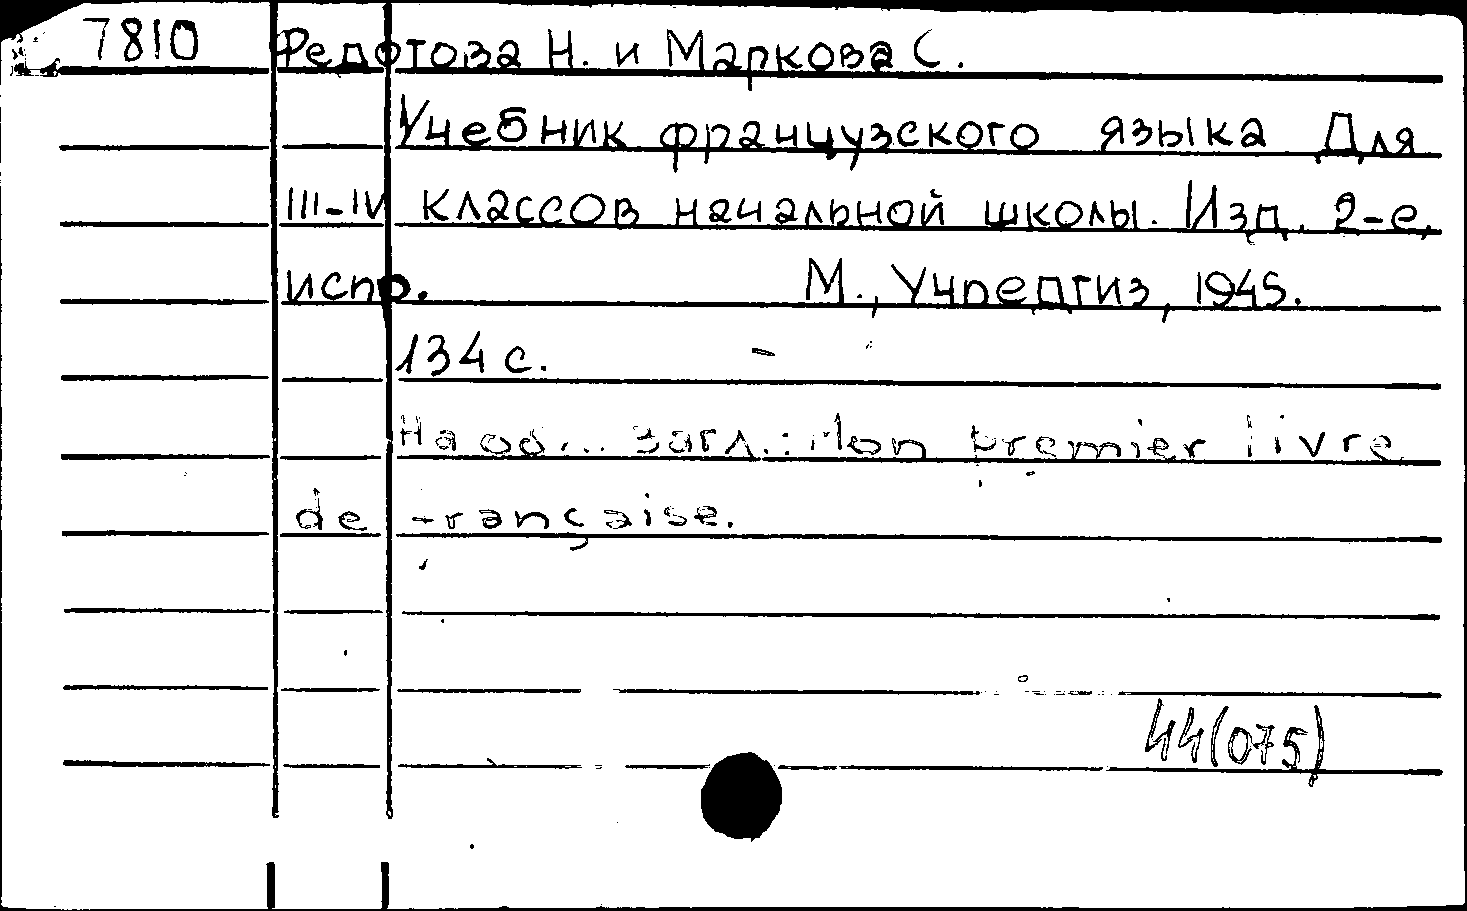 7810 Федотова Н. и Маркова С.
Учебник французского языка Для
III-IV классов начальной школы. Изд. 2-е,
испр. М., Учпедгиз, 1945.
134 с.
На об... загл.: Mon premier livre
de française.
44(075)